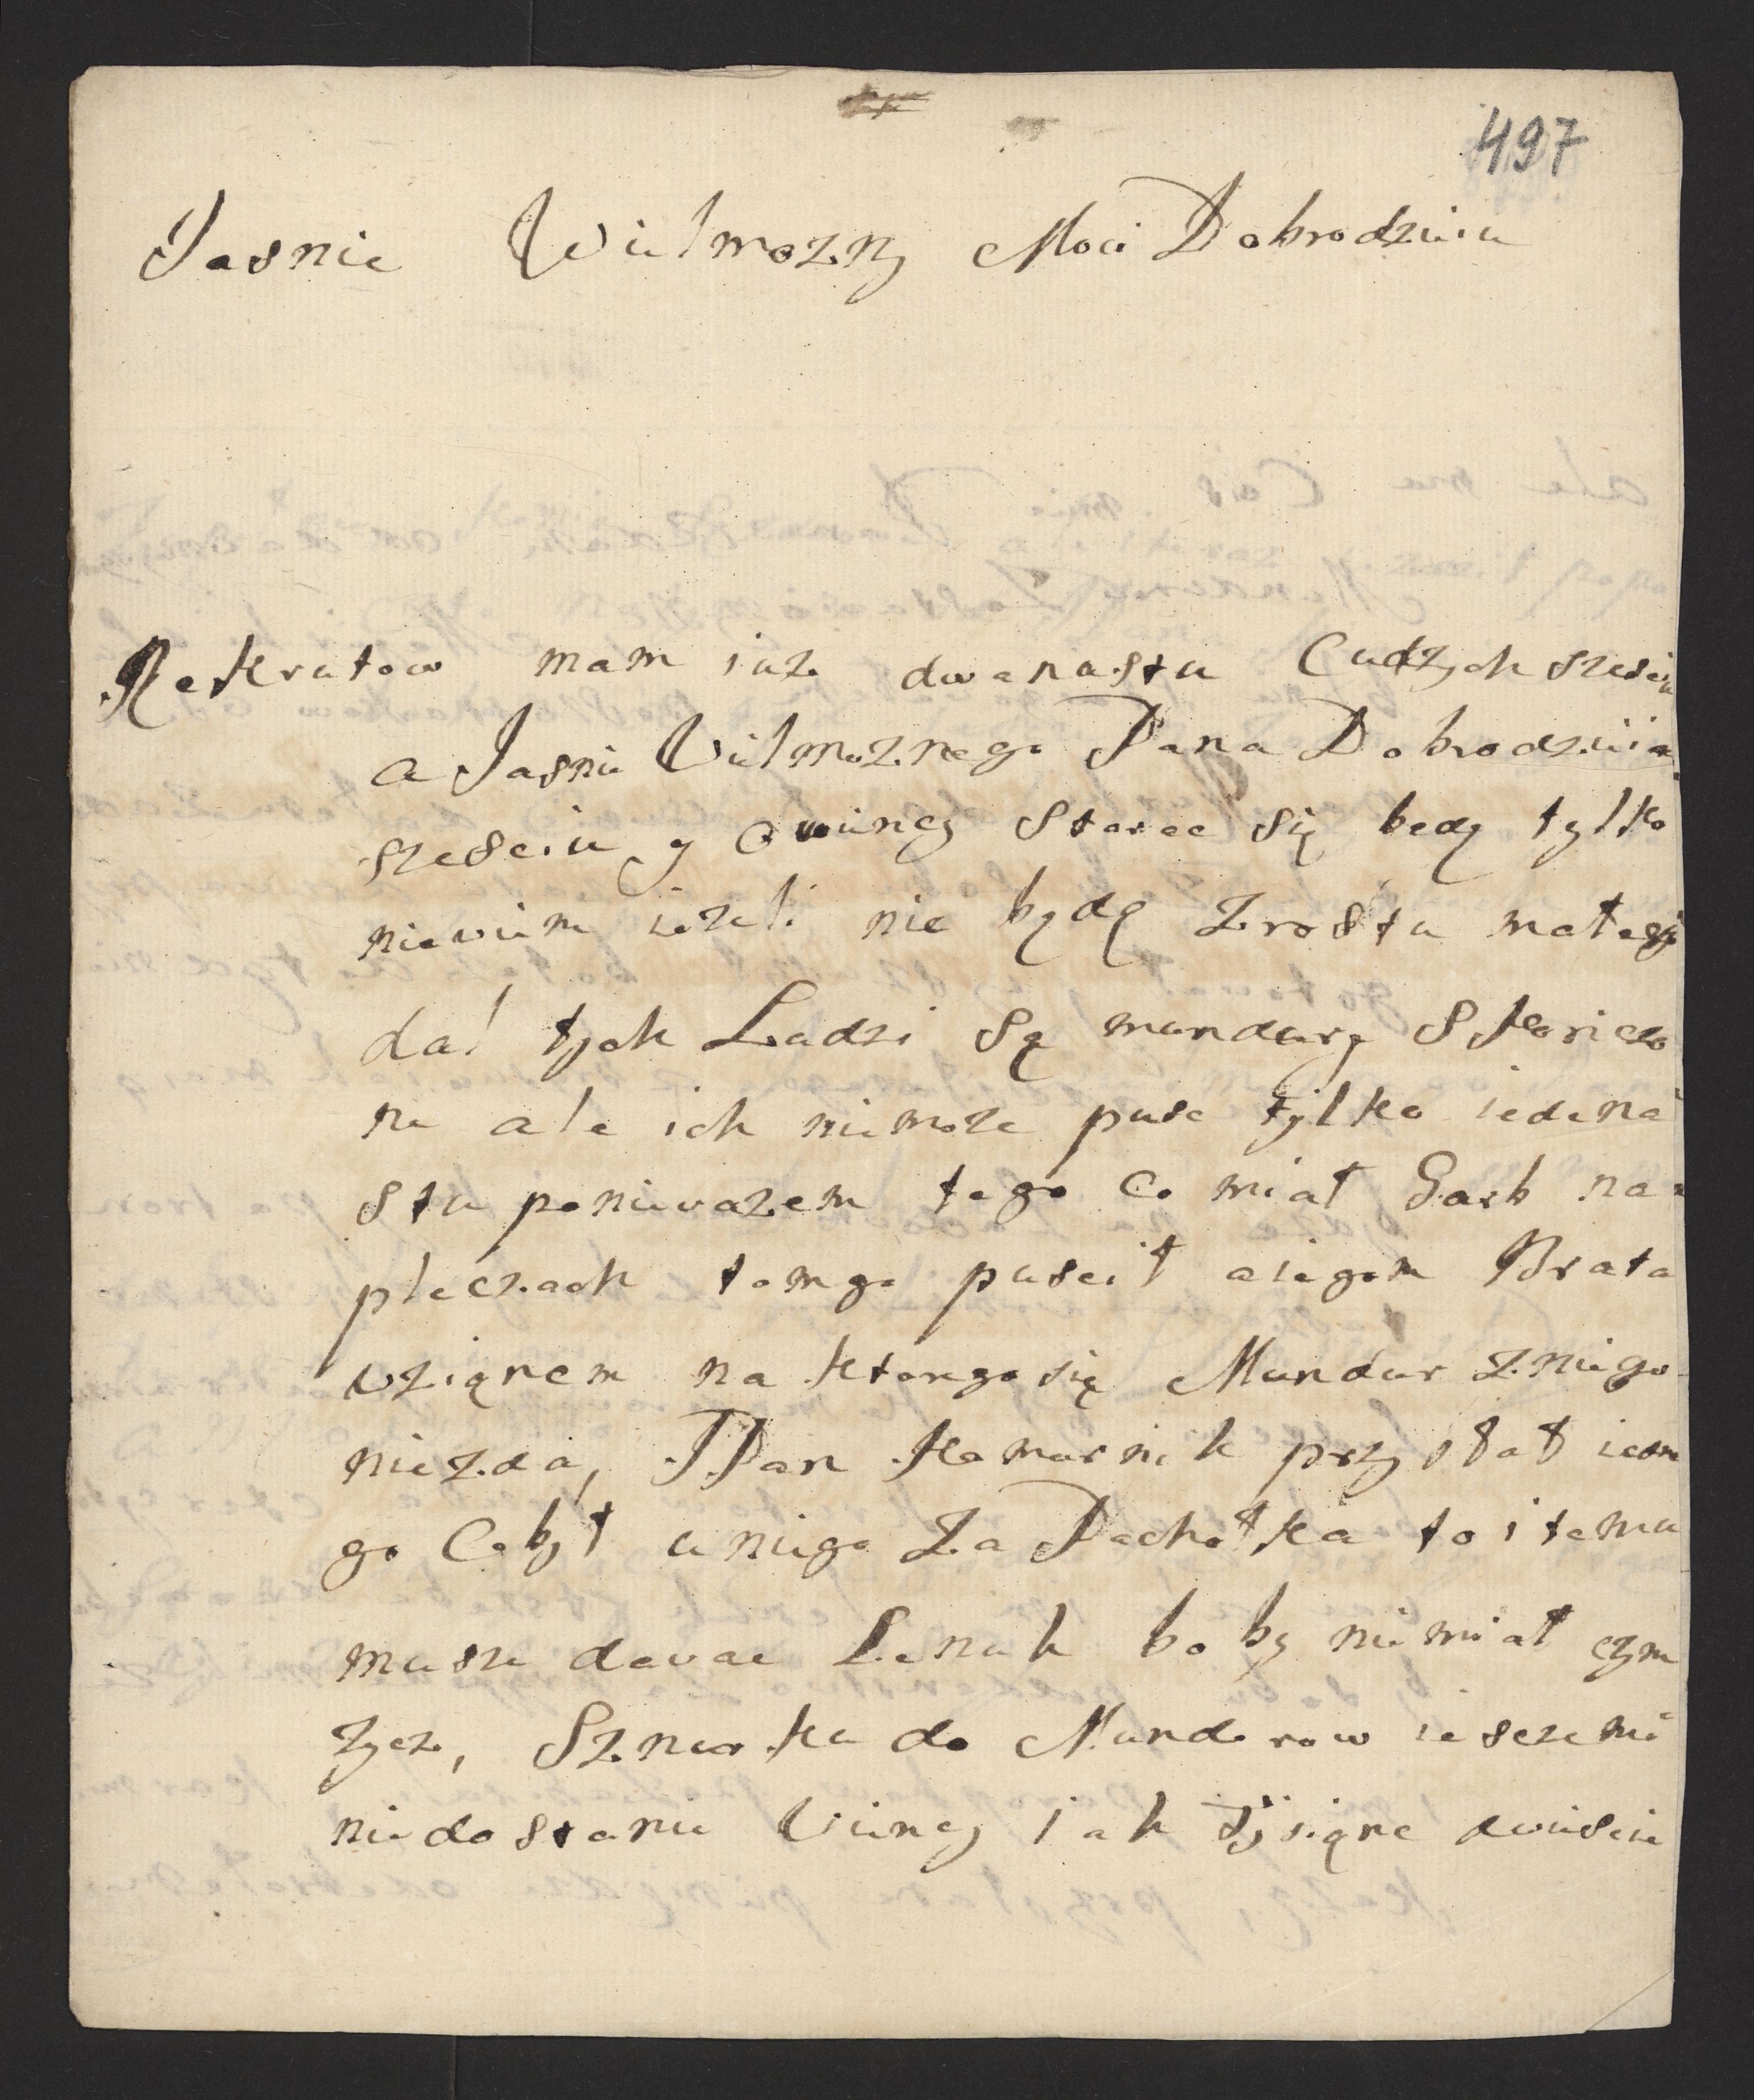 497
Jasnie Wielmozny Moci Dobrodzieiu
Rekrutow mam iuz dwanastu Cudzych szesciu
a Jasnie Wielmoznego Pana Dobrodzieia
szesciu y owiency starac się będę tylko
niewiem iezeli nie będę zrostu małego
dal tych Ludzi są mundury Skoncze
ne ale ich niemoze pusc tylko iedena
stu poniewazem tego co miał Garb na
pleczach tomgo puscił aiegom Brata
wziąnem na ktorego się Mundur zniego
niezda, JPan Komurnik przysłał iedne
go Cobył uniego za Pachołka to i temu
musze dawac Lenuk bo by niemiał czym
zycz, Sznurka do Mundurow ieszcze mi
niedostanie Wiency iak tysiąnc dwiescie